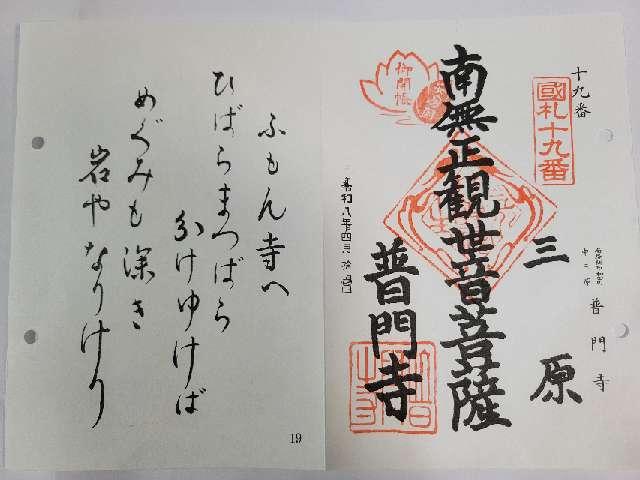 十九番
國札十九番
三原
普門寺
御開帳
南無正観世音菩薩
普門寺
令和八年四月拾四日
ふもん寺へ
ひばらまつばら
分けゆけば
めぐみも深き
岩やなりけり
19